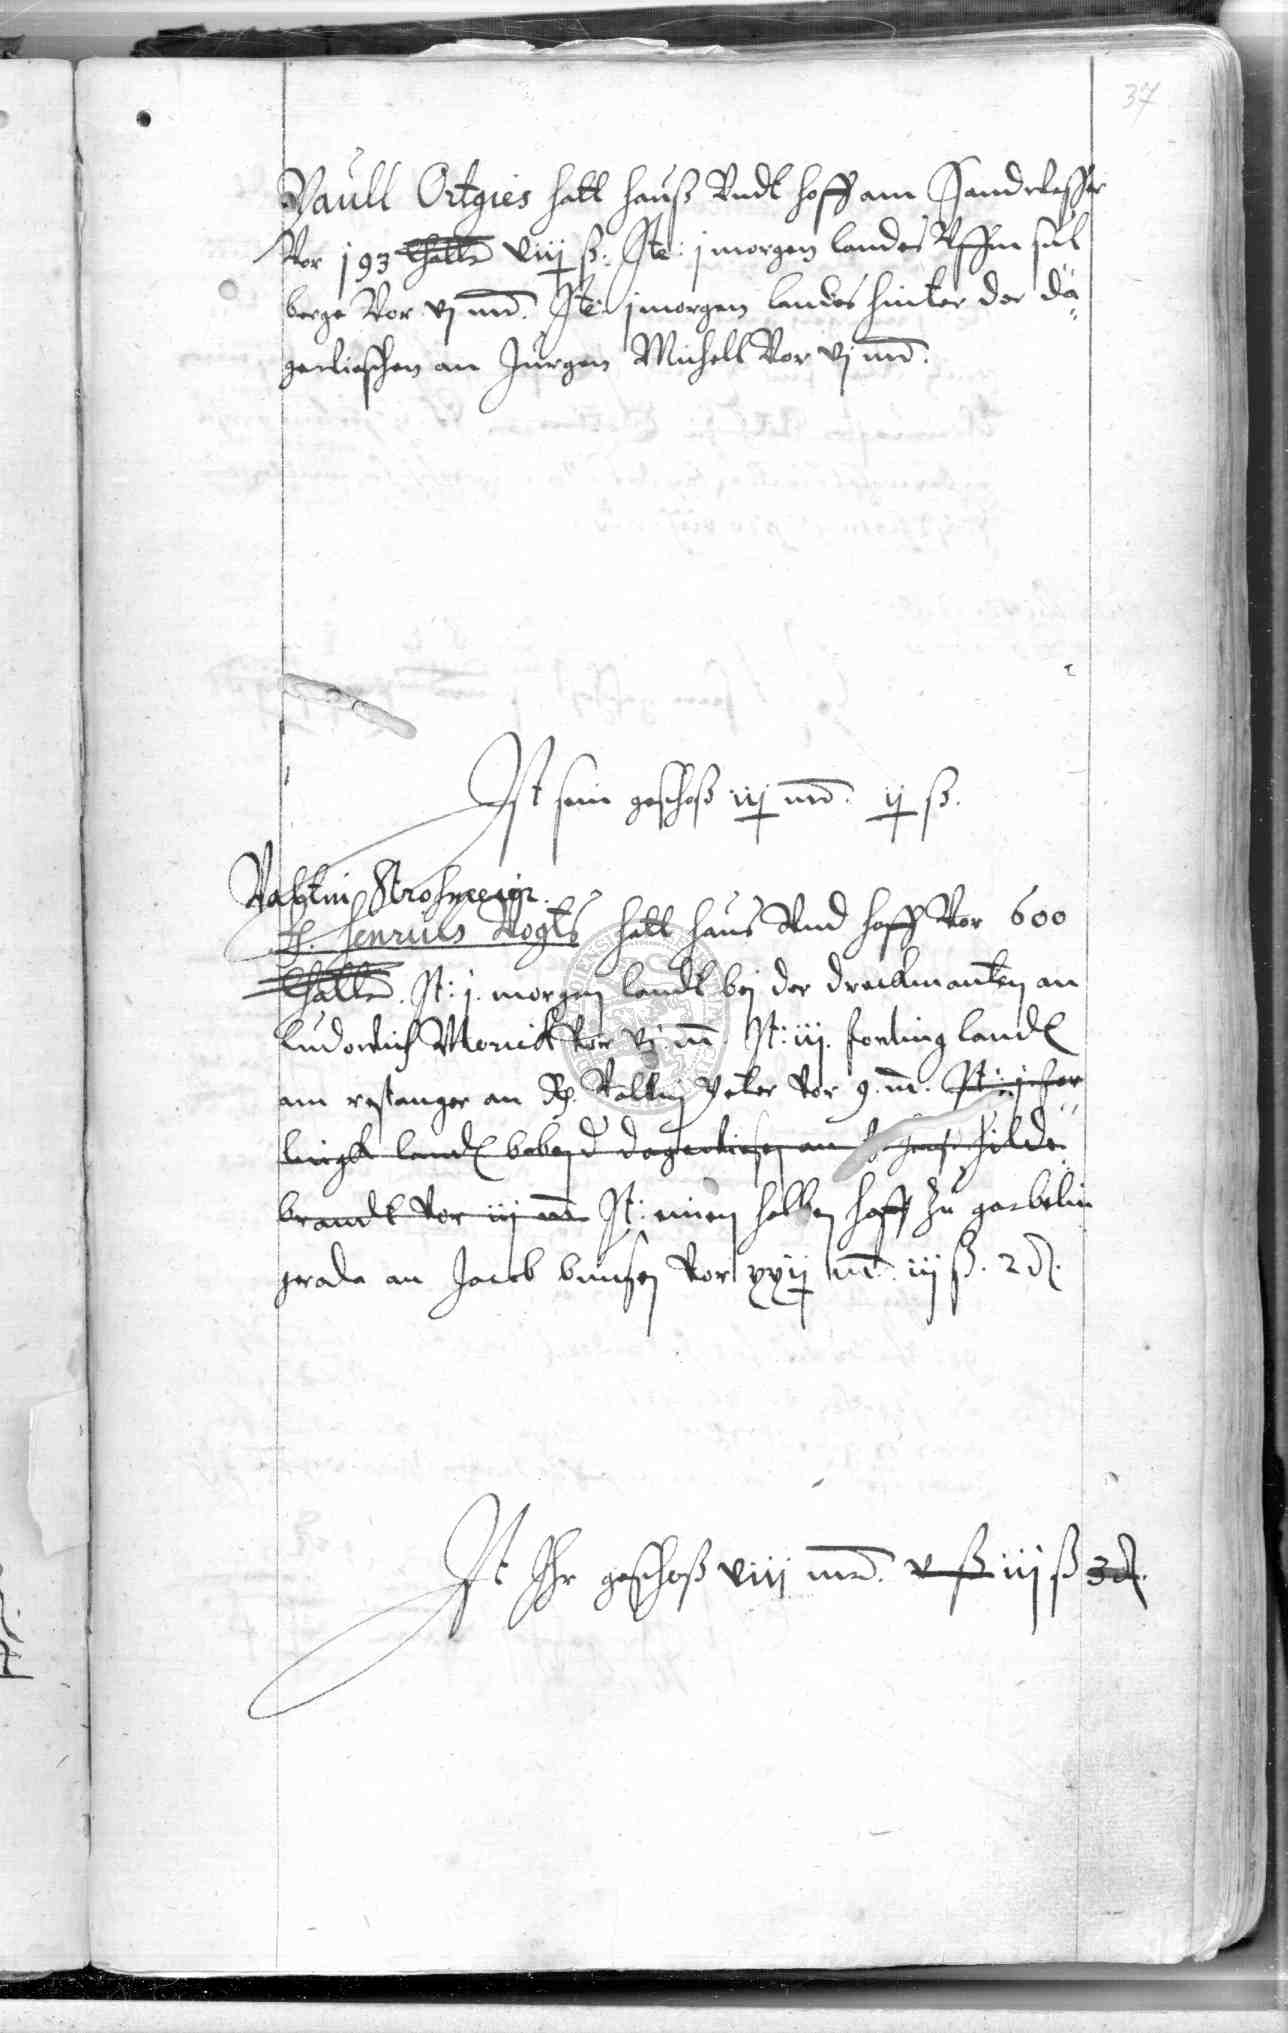 37
Paull Ortgies hatt hauß Vndt hoff am Sandwasser
Vor 193 thaler viij ß: Ite: j morgen landes Vffm sal
berge Vor vj mr. Ite: j morgen landes hinter der da
gerlieschen an Jurgen Michell Vor vj mr.
Ist sein geschoß iij mr. ij ß.
Valtin Strohmeier.
H. Henrics Vogts hatt haus Vnd hoff Vor 600
thaler. It: j. morgen landt bej der dreckmanten an
Ludowich Monick Vor vj m. It: iij. forling landes
am restanger an H. Valtin Peter Vor 9. m. It: ij for
lingk landes baben d dagerliesen an Hilde
brandt Vor iij m It: einen halben hoff zu garbelin
gerade an Jacob bunsen Vor xxij m. iij ß. 2 d.
Ist Ihr geschoß viij mr. v ß iij ß 3 d.